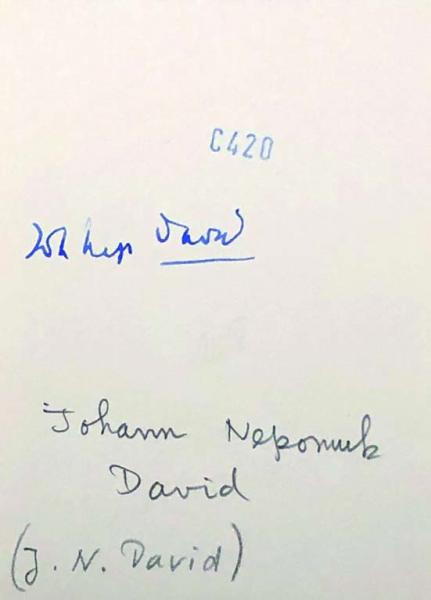 C420
Joh Nep David
Johann Nepomuk
David
(J. N. David)